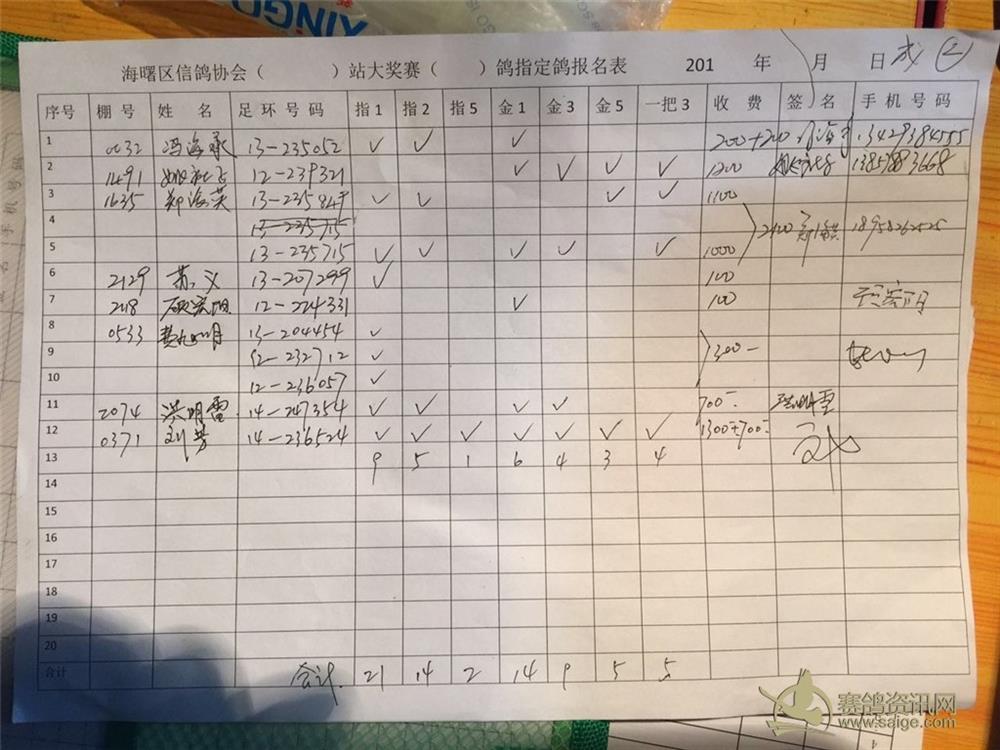 XINGD
海曙区信鸽协会（ ）站大奖赛（ ）鸽指定鸽报名表 201 年 月 日 成 ②
序号 棚号 姓名 足环号码 指1 指2 指5 金1 金3 金5 一把3 收费 签名 手机号码
1 0032 冯海承 13-235052 ✓ ✓ ✓ 200+200 13429384555
2 1491 12-239321 ✓ ✓ ✓ ✓ 1200
3 1635 郑海英 ✓ ✓ ✓ ✓ 1100
4 13-235715 2100 18958262525
5 13-235715 ✓ ✓ ✓ ✓ ✓ 1000
6 2129 苏义 13-207299 ✓ 100
7 2118 顾宏明 12-224331 ✓ 100 顾宏明
8 0533 13-204454 ✓
9 12-232712 ✓ 300-
10 12-236057 ✓
11 2074 洪明雷 14-247354 ✓ ✓ ✓ ✓ 700- 洪明雷
12 0371 刘芳 14-236524 ✓ ✓ ✓ ✓ ✓ ✓ ✓ 1300+700-
13 9 5 1 6 4 3 4
14
15
16
17
18
19
20
合计 合计. 21 14 2 14 9 5 5
赛鸽资讯网
www.saige.com